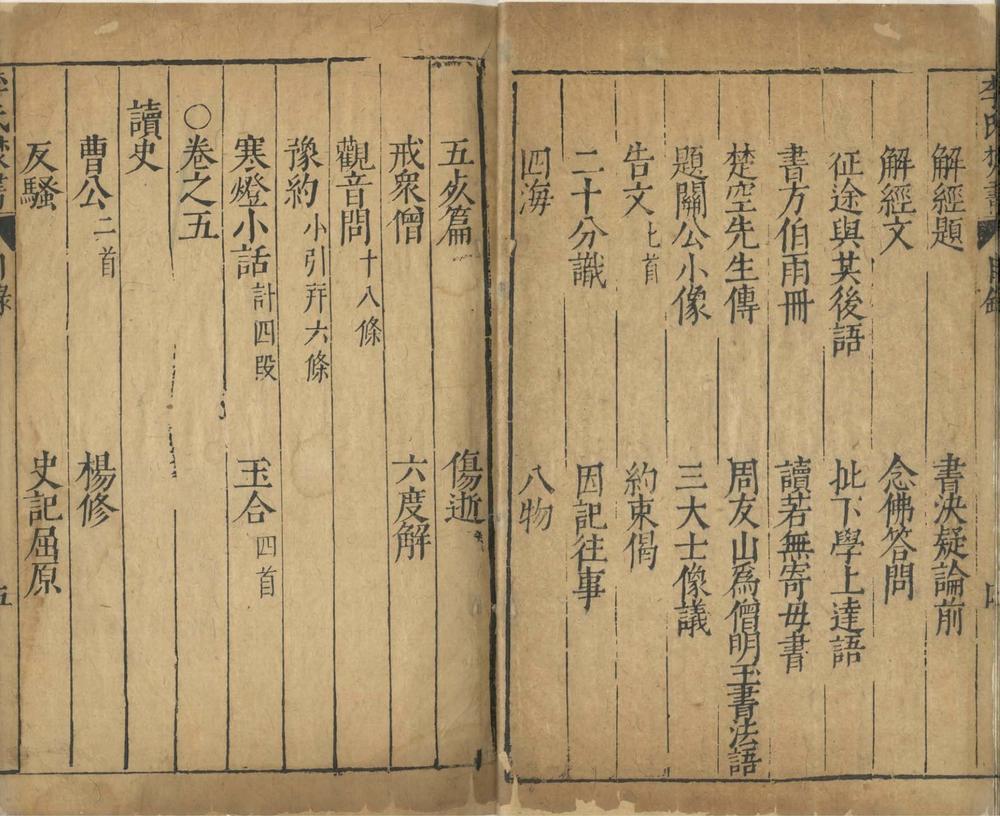 李氏焚書 目錄 四
解經題 書決疑論前
解經文 念佛答問
征途與其後語 批下學上達語
書方伯雨冊 讀若無寄母書
楚空先生傳 周友山爲僧明玉書法語
題關公小像 三大士像議
告文 七首 約束偈
二十分識 因記往事
四海 八物
五歺篇 傷逝
戒衆僧 六度解
觀音問 十八條
豫約 小引并六條
寒燈小話 計四段 玉合 四首
○卷之五
讀史
曹公 二首 楊修
反騷 史記屈原
李氏焚書 目錄 五